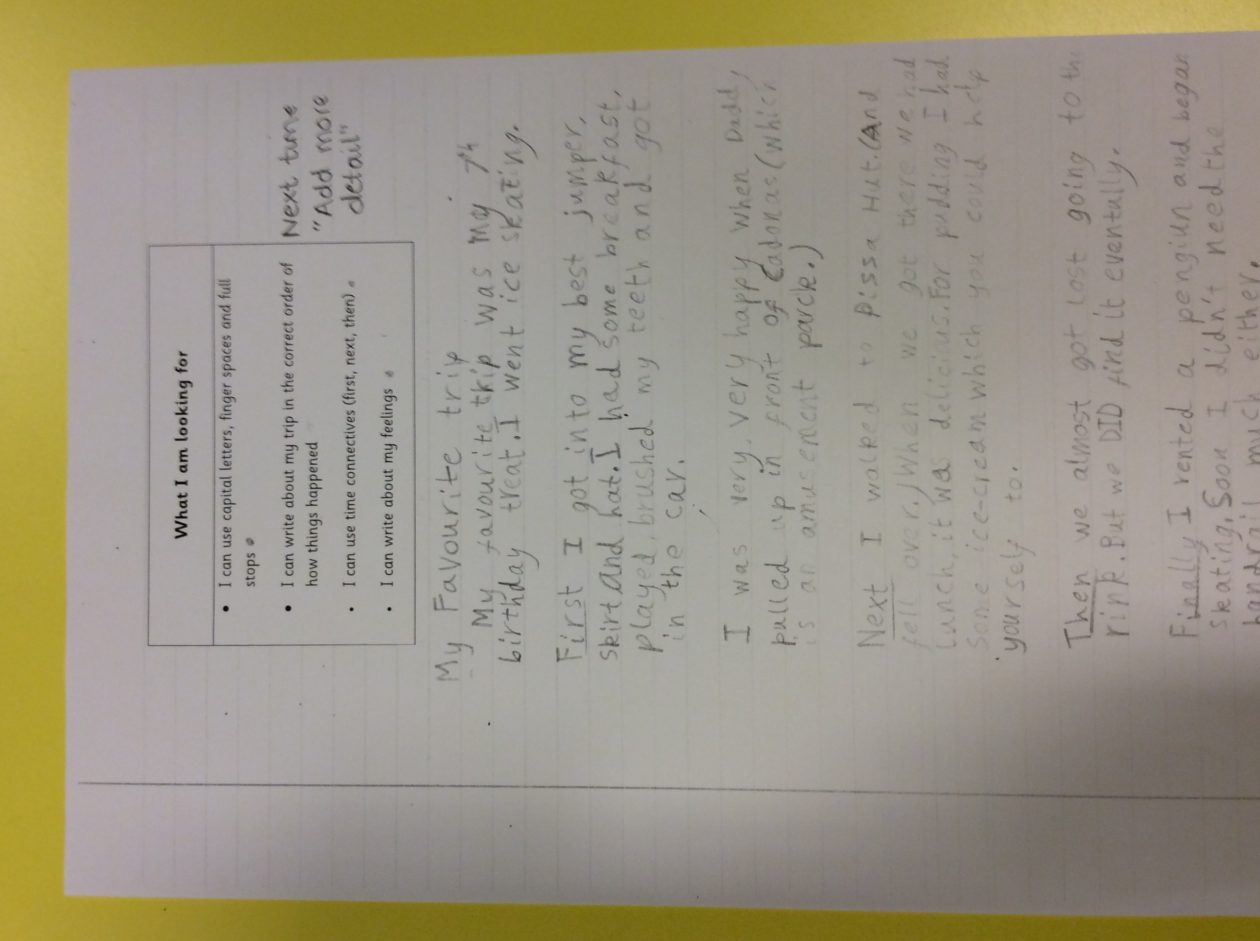 What I am looking for
• I can use capital letters, finger spaces and full
stops
• I can write about my trip in the correct order of
how things happened
• I can use time connectives (first, next, then)
• I can write about my feelings
Next time
"Add more
detail"
My Favourite trip
My favourite trip was my 7th
birthday treat. I went ice skating.
First I got into my best jumper,
skirt and hat. I had some breakfast,
played, brushed my teeth and got
in the car.
I was very, very happy when Daddy
pulled up in front of Codonas (which
is an amusement parck.)
Next I walked to pissa Hut. (And
fell over.) When we got there we had
lunch, it wa delicius. For pudding I had
some ice-cream which you could help
yourself to.
Then we almost got lost going to the
rink. But we DID find it eventually.
Finally I rented a pengiun and began
skating. Soon I didn't need the
handrail much either.